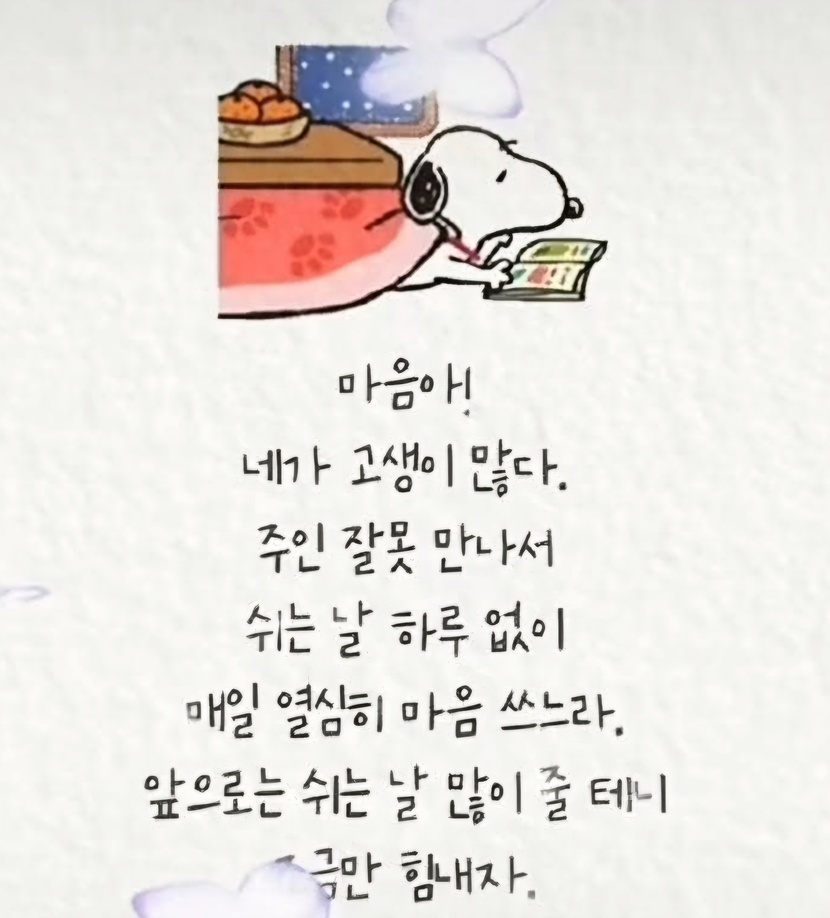 마음아!
네가 고생이 많다.
주인 잘못 만나서
쉬는 날 하루 없이
매일 열심히 마음 쓰느라.
앞으로는 쉬는 날 많이 줄 테니
힘내자.